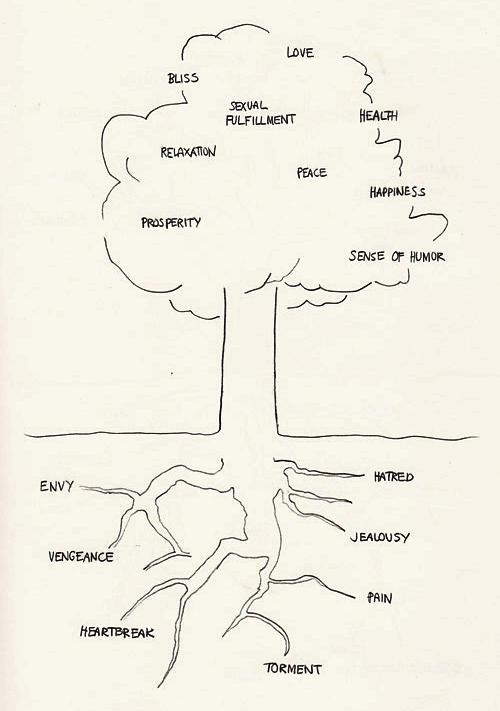 LOVE
BLISS
SEXUAL
FULFILLMENT
HEALTH
RELAXATION
PEACE
HAPPINESS
PROSPERITY
SENSE OF HUMOR
HATRED
ENVY
JEALOUSY
VENGEANCE
PAIN
HEARTBREAK
TORMENT